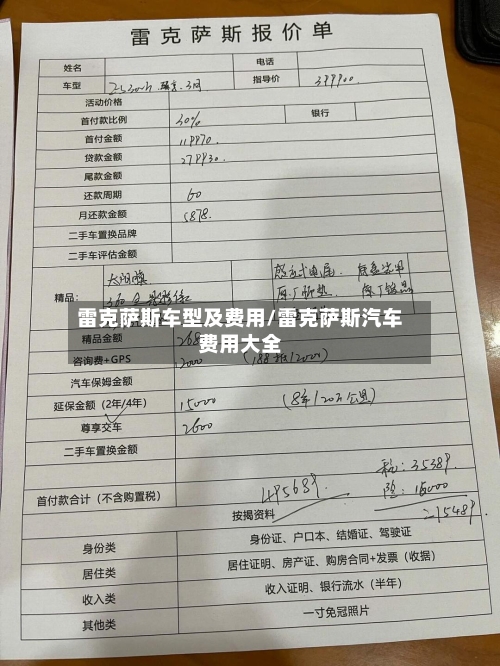 雷克萨斯报价单
姓名 电话
车型 指导价 399900.
活动价格
首付款比例 30% 银行
首付金额 119970.
贷款金额 279930.
尾款金额
还款周期 60
月还款金额 5878.
二手车置换品牌
二手车评估金额
太阳膜
精品: 360 原厂
雷克萨斯车型及费用/雷克萨斯汽车
费用大全
精品金额 268
咨询费+GPS 2000
汽车保姆金额
延保金额（2年/4年） 15000 (8年/20万公里)
尊享交车 2600
二手车置换金额
税: 35389.
首付款合计（不含购置税） 险: 15000
按揭资料 215489
身份类 身份证、户口本、结婚证、驾驶证
居住类 居住证明、房产证、购房合同+发票（收据）
收入类 收入证明、银行流水（半年）
其他类 一寸免冠照片